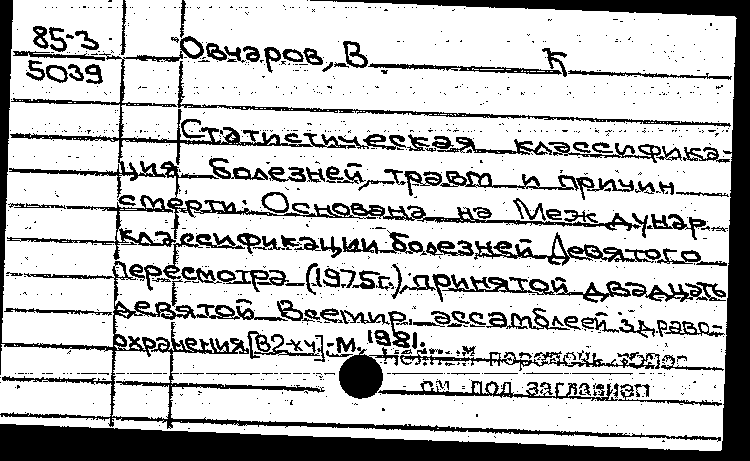 85-3
5039
Овчаров, В. К
Статистическая классифика-
ция болезней, травм и причин
смерти: Основана на Междунар.
классификации болезней Девятого
пересмотра (1975г.), принятой двадцать
девятой Всемир. ассамблеей здраво-
охранения. [В2-хч]-М. 1981.
Полный перечень томов
см под заглавием